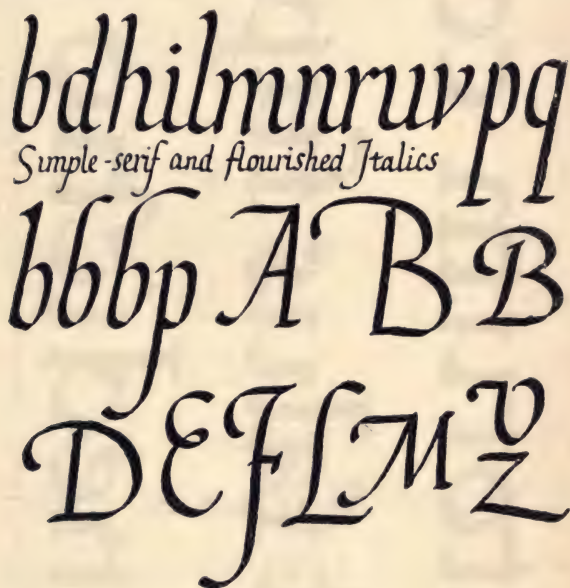 bdhilmnruvpq
Simple-serif and flourished Italics
bbbp A B B
DEFLM V
Z